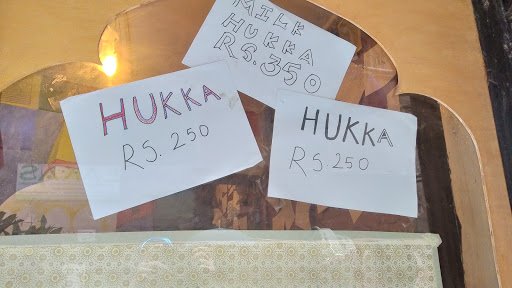 MILK
HUKKA
RS.350
HUKKA
RS. 250
HUKKA
RS.250